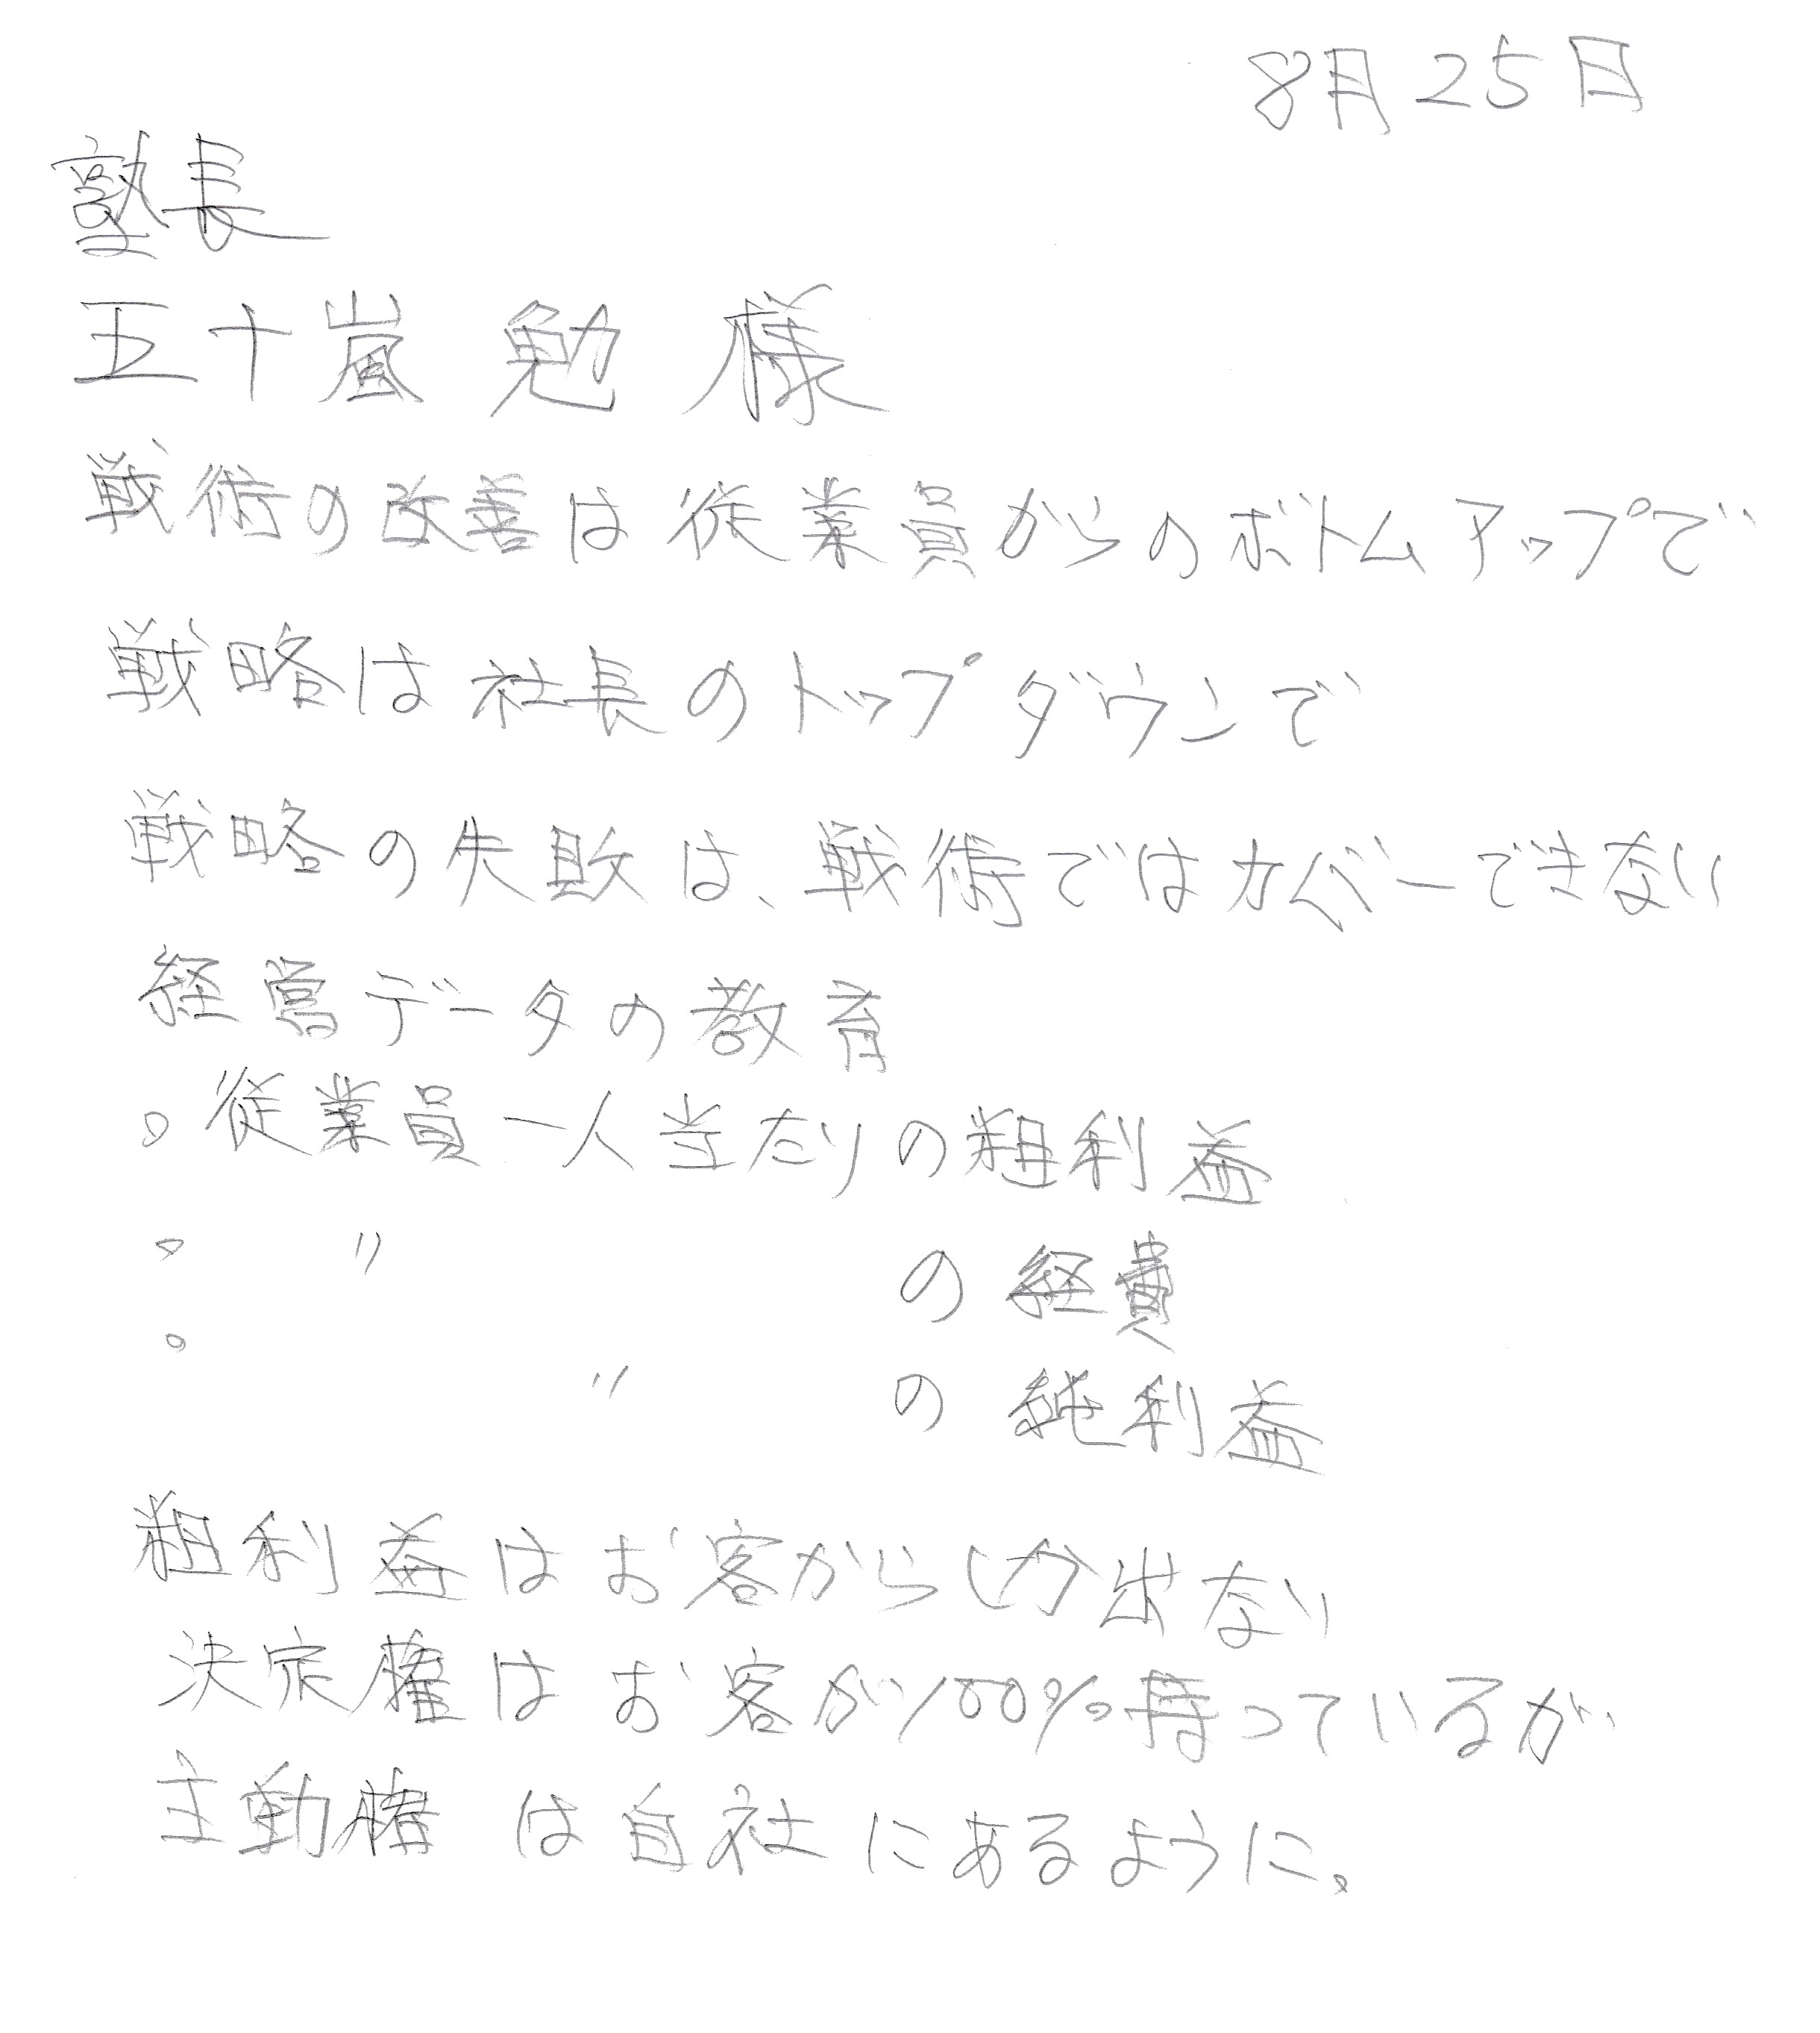 8月25日
塾長
五十嵐 勉 様
戦術の改善は従業員からのボトムアップで
戦略は社長のトップダウンで
戦略の失敗は、戦術ではカバーできない
経営データの教育
。従業員一人当たりの粗利益
。 〃 の経費
。 〃 の純利益
粗利益はお客からしか出ない
決定権はお客が100%持っているが
主動権は自社にあるように。